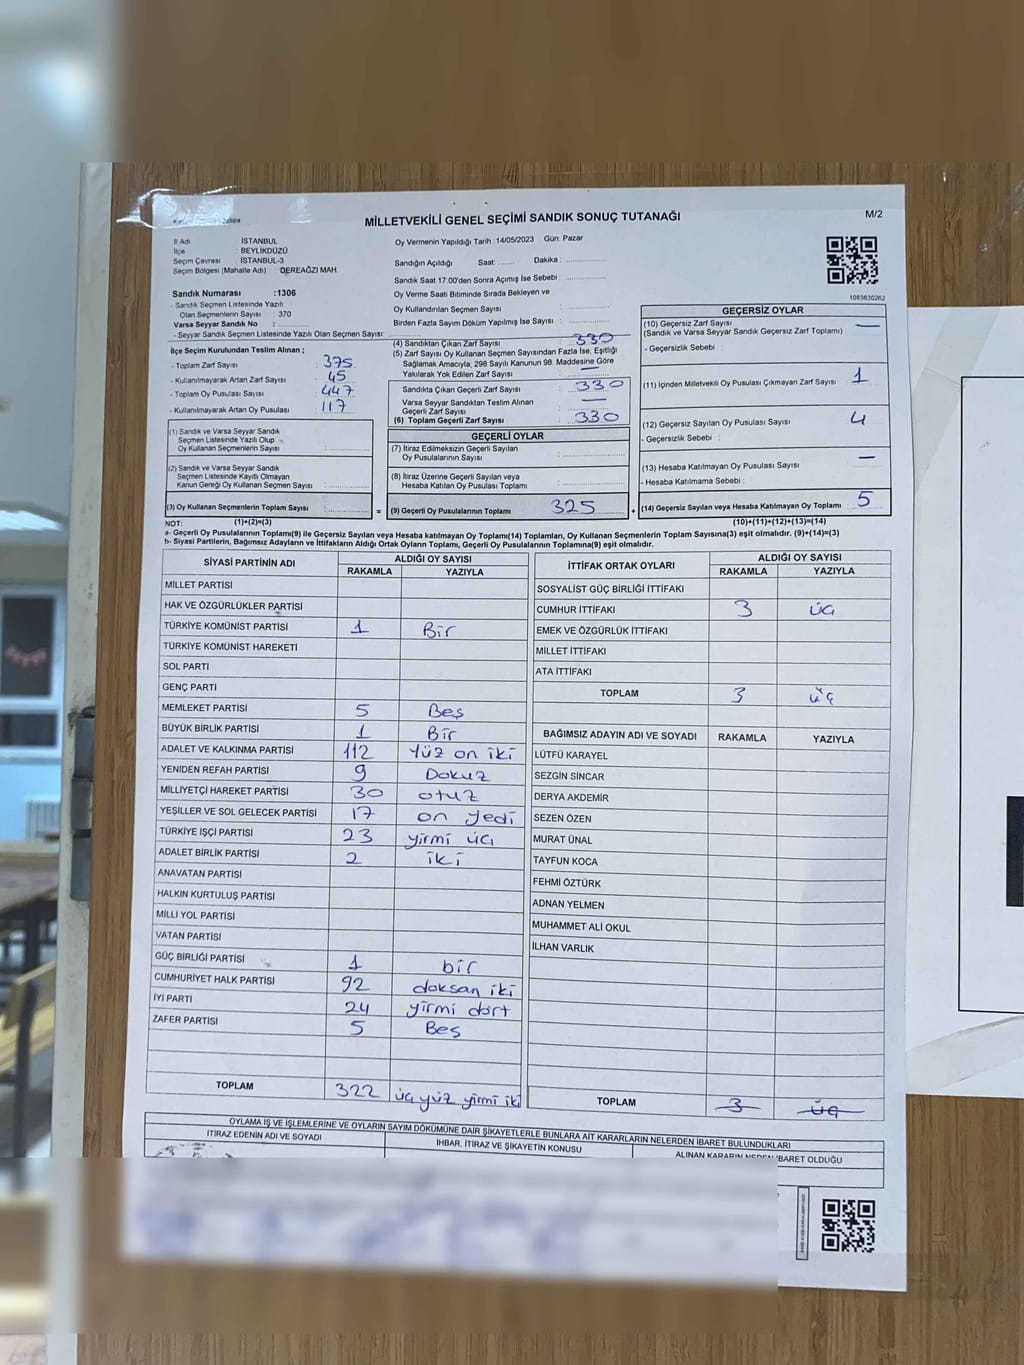 MİLLETVEKİLİ GENEL SEÇİMİ SANDIK SONUÇ TUTANAĞI
M/2
İl Adı İSTANBUL
İlçe : BEYLİKDÜZÜ
Seçim Çevresi : İSTANBUL-3
Seçim Bölgesi (Mahalle Adı) : DEREAĞZI MAH.
Oy Vermenin Yapıldığı Tarih : 14/05/2023 Gün: Pazar
Sandığın Açıldığı Saat: Dakika :
Sandık Saat 17.00'den Sonra Açılmış İse Sebebi :
Oy Verme Saati Bitiminde Sırada Bekleyen ve
Oy Kullandırılan Seçmen Sayısı
Birden Fazla Sayım Döküm Yapılmış İse Sayısı :
1083630262
Sandık Numarası :1306
- Sandık Seçmen Listesinde Yazılı
Olan Seçmenlerin Sayısı : 370
Varsa Seyyar Sandık No :
- Seyyar Sandık Seçmen Listesinde Yazılı Olan Seçmen Sayısı:
İlçe Seçim Kurulundan Teslim Alınan ;
- Toplam Zarf Sayısı : 375
- Kullanılmayarak Artan Zarf Sayısı : 45
- Toplam Oy Pusulası Sayısı : 447
- Kullanılmayarak Artan Oy Pusulası : 117
(1) Sandık ve Varsa Seyyar Sandık
Seçmen Listesinde Yazılı Olup
Oy Kullanan Seçmenlerin Sayısı :
(2) Sandık ve Varsa Seyyar Sandık
Seçmen Listesinde Kayıtlı Olmayan
Kanun Gereği Oy Kullanan Seçmen Sayısı :
(3) Oy Kullanan Seçmenlerin Toplam Sayısı :
(1)+(2)=(3)
(4) Sandıktan Çıkan Zarf Sayısı : 330
(5) Zarf Sayısı Oy Kullanan Seçmen Sayısından Fazla İse, Eşitliği
Sağlamak Amacıyla; 298 Sayılı Kanunun 98. Maddesine Göre
Yakılarak Yok Edilen Zarf Sayısı :
Sandıkta Çıkan Geçerli Zarf Sayısı : 330
Varsa Seyyar Sandıktan Teslim Alınan
Geçerli Zarf Sayısı : —
(6) Toplam Geçerli Zarf Sayısı : 330
GEÇERLİ OYLAR
(7) İtiraz Edilmeksizin Geçerli Sayılan
Oy Pusulalarının Sayısı :
(8) İtiraz Üzerine Geçerli Sayılan veya
Hesaba Katılan Oy Pusulası Toplamı :
= (9) Geçerli Oy Pusulalarının Toplamı : 325
GEÇERSİZ OYLAR
(10) Geçersiz Zarf Sayısı —
(Sandık ve Varsa Seyyar Sandık Geçersiz Zarf Toplamı)
- Geçersizlik Sebebi :
(11) İçinden Milletvekili Oy Pusulası Çıkmayan Zarf Sayısı 1
(12) Geçersiz Sayılan Oy Pusulası Sayısı 4
- Geçersizlik Sebebi :
(13) Hesaba Katılmayan Oy Pusulası Sayısı —
- Hesaba Katılmama Sebebi :
+ (14) Geçersiz Sayılan veya Hesaba Katılmayan Oy Toplamı 5
(10)+(11)+(12)+(13)=(14)
NOT:
a- Geçerli Oy Pusulalarının Toplamı(9) ile Geçersiz Sayılan veya Hesaba katılmayan Oy Toplamı(14) Toplamları, Oy Kullanan Seçmenlerin Toplam Sayısına(3) eşit olmalıdır. (9)+(14)=(3)
b- Siyasi Partilerin, Bağımsız Adayların ve İttifakların Aldığı Ortak Oyların Toplamı, Geçerli Oy Pusulalarının Toplamına(9) eşit olmalıdır.
SİYASİ PARTİNİN ADI ALDIĞI OY SAYISI
RAKAMLA YAZIYLA
MİLLET PARTİSİ
HAK VE ÖZGÜRLÜKLER PARTİSİ
TÜRKİYE KOMÜNİST PARTİSİ 1 Bir
TÜRKİYE KOMÜNİST HAREKETİ
SOL PARTİ
GENÇ PARTİ
MEMLEKET PARTİSİ 5 Beş
BÜYÜK BİRLİK PARTİSİ 1 Bir
ADALET VE KALKINMA PARTİSİ 112 Yüz on iki
YENİDEN REFAH PARTİSİ 9 Dokuz
MİLLİYETÇİ HAREKET PARTİSİ 30 otuz
YEŞİLLER VE SOL GELECEK PARTİSİ 17 on yedi
TÜRKİYE İŞÇİ PARTİSİ 23 yirmi üç
ADALET BİRLİK PARTİSİ 2 iki
ANAVATAN PARTİSİ
HALKIN KURTULUŞ PARTİSİ
MİLLİ YOL PARTİSİ
VATAN PARTİSİ
GÜÇ BİRLİĞİ PARTİSİ 1 bir
CUMHURİYET HALK PARTİSİ 92 doksan iki
İYİ PARTİ 24 yirmi dört
ZAFER PARTİSİ 5 Beş
TOPLAM 322 üç yüz yirmi iki
İTTİFAK ORTAK OYLARI ALDIĞI OY SAYISI
RAKAMLA YAZIYLA
SOSYALİST GÜÇ BİRLİĞİ İTTİFAKI
CUMHUR İTTİFAKI 3 üç
EMEK VE ÖZGÜRLÜK İTTİFAKI
MİLLET İTTİFAKI
ATA İTTİFAKI
TOPLAM 3 üç
BAĞIMSIZ ADAYIN ADI VE SOYADI RAKAMLA YAZIYLA
LÜTFÜ KARAYEL
SEZGİN SİNCAR
DERYA AKDEMİR
SEZEN ÖZEN
MURAT ÜNAL
TAYFUN KOCA
FEHMİ ÖZTÜRK
ADNAN YELMEN
MUHAMMET ALİ OKUL
İLHAN VARLIK
TOPLAM 3 üç
OYLAMA İŞ VE İŞLEMLERİNE VE OYLARIN SAYIM DÖKÜMÜNE DAİR ŞİKAYETLERLE BUNLARA AİT KARARLARIN NELERDEN İBARET BULUNDUKLARI
İTİRAZ EDENİN ADI VE SOYADI İHBAR, İTİRAZ VE ŞİKAYETİN KONUSU ALINAN KARARIN NEDEN İBARET OLDUĞU